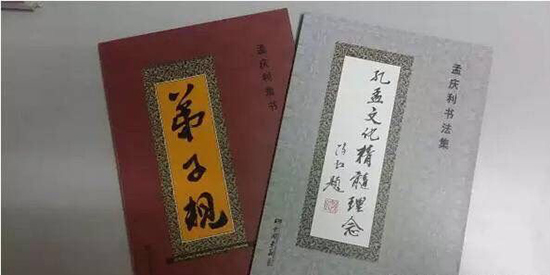 孟庆利书
弟子规
孟庆利书法集
孔孟文化精髓理念
题